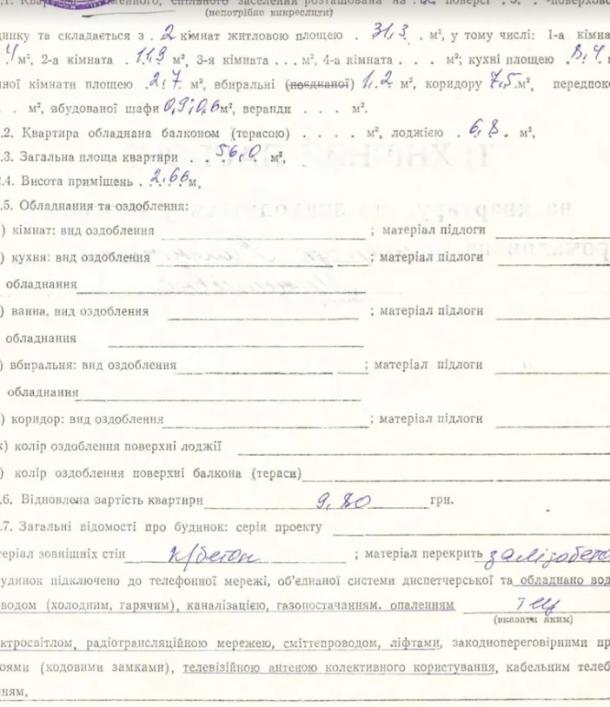 поверсі
(непотрібне викреслити)
инку та складається з . 2 кімнат житловою площею . 31,3 . м², у тому числі: 1-а кімна
м², 2-а кімната . 11,9 м², 3-я кімната . . . м², 4-а кімната . . . м²; кухні площею . 8,4
ної кімнати площею . 2,7. м², вбиральні (поєднаної) 1,2 м², коридору 7,5 м², передпоко
. . м², вбудованої шафи 0,9; 0,6 м², веранди . . м².
.2. Квартира обладнана балконом (терасою) . . . . м², лоджією . 6,8 . м²,
.3. Загальна площа квартири . . 56,0 м²,
.4. Висота приміщень . 2.66 м,
.5. Обладнання та оздоблення:
) кімнат: вид оздоблення ; матеріал підлоги
) кухня: вид оздоблення ; матеріал підлоги
обладнання
) ванна, вид оздоблення ; матеріал підлоги
обладнання
) вбиральня: вид оздоблення ; матеріал підлоги
обладнання
) коридор: вид оздоблення ; матеріал підлоги
) колір оздоблення поверхні лоджії
) колір оздоблення поверхні балкона (тераси)
.6. Відновлена вартість квартири 9,80 грн.
.7. Загальні відомості про будинок: серія проекту
теріал зовнішніх стін к/бетон ; матеріал перекрить залізобето
удинок підключено до телефонної мережі, об'єднаної системи диспетчерської та обладнано вод
водом (холодним, гарячим), каналізацією, газопостачанням, опаленням тец
(вказати яким)
ктросвітлом, радіотрансляційною мережею, сміттєпроводом, ліфтами, закодиопереговірними пр
оями (кодовими замками), телевізійною антеною колективного користування, кабельним телеб
ням,